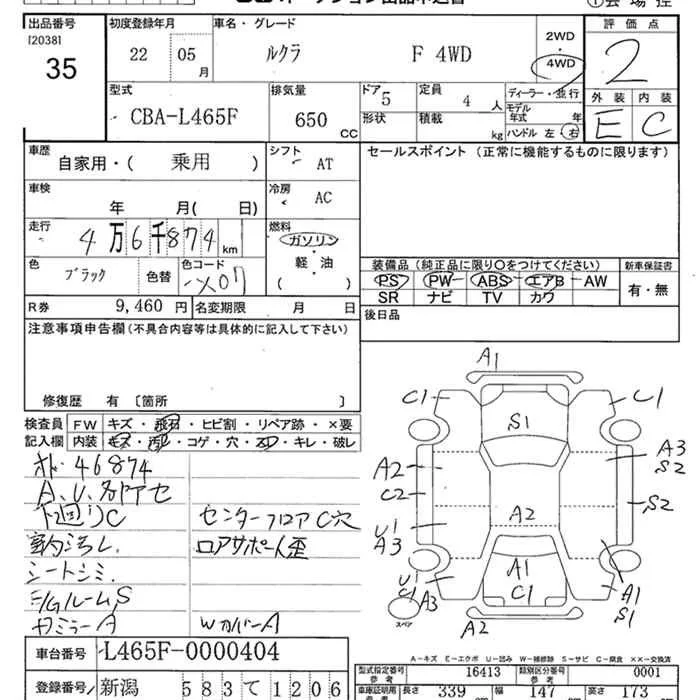 出品番号 初度登録年月 車名・グレード 評価点
12038
35 22 05月 ルクラ F 4WD 2WD・4WD 2
型式 排気量 ドア 定員 ディーラー・並行 外装 内装
CBA-L465F 650CC 5 4人 モデル年式 年 E C
形状 積載 kg ハンドル 左・右
車歴 自家用・( 乗用 ) シフト AT セールスポイント (正常に機能するものに限ります)
車検 年 月( 日) 冷房 AC
走行 4万6千874km 燃料 ガソリン 軽・油 ( ・ )
色 ブラック 色替 色コード X07
装備品 (純正品に限り○をつけてください) 新車保証書
PS PW ABS エアB AW 有・無
SR ナビ TV カワ
R券 9,460円 名変期限 月 日 後日品
注意事項申告欄(不具合内容等は具体的に記入して下さい)
修復歴 有 〔箇所 〕
検査員記入欄 FW キズ・飛石・ヒビ割・リペア跡・×要
内装 キズ・汚レ・コゲ・穴・スレ・キレ・破レ
46874
A、U、各所アセ
下回りC センターフロアC穴
室内汚レ ロアサポート歪
シートシミ
E/GルームS
ミラーA WカバーA
A1
C1 C1
S1
A2 A3
C2 S2
S2
A2
U1 A3
A1
C1
U1 C1 A3 A1
S1
スペア
A2
車台番号 L465F-0000404
登録番号 新潟 583て1206
A-キズ E-エクボ U-凹み W-補修跡 S-サビ C-腐食 XX-交換済
型式指定番号 参考 16413 類別区分番号 参考 0001
車庫証明用 参考 長さ 339 幅 147 高さ 173